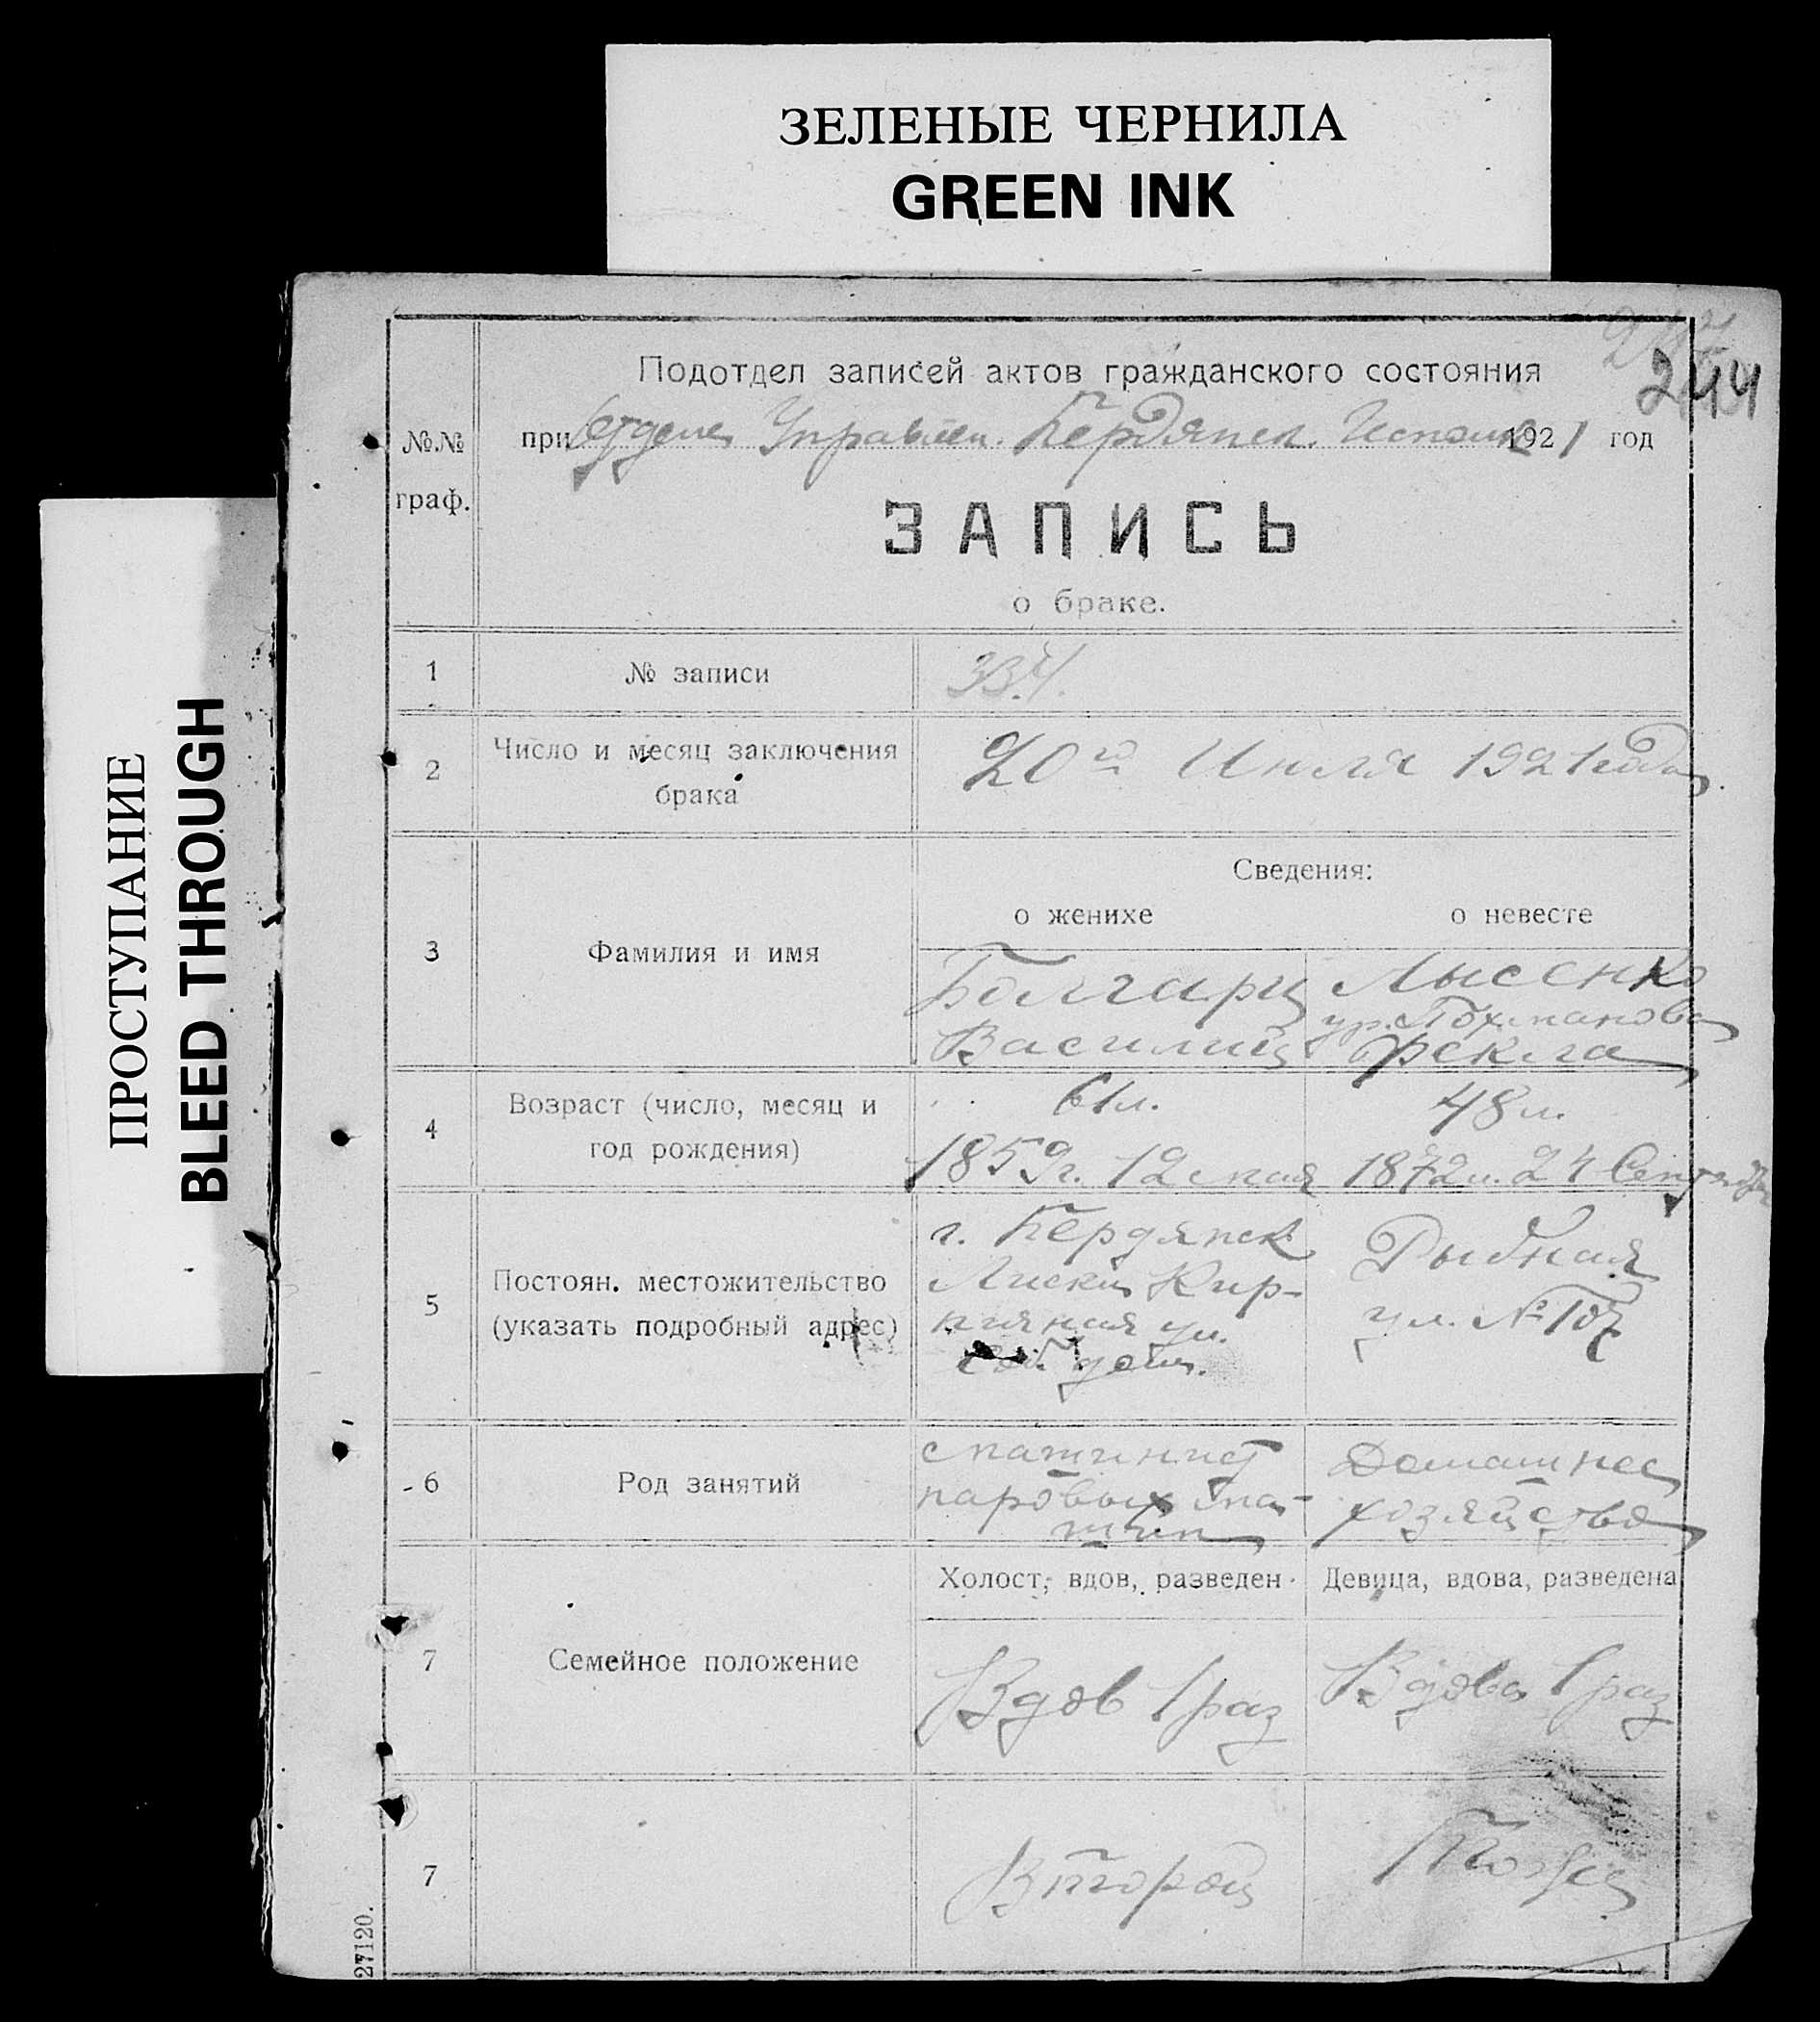 ЗЕЛЕНЫЕ ЧЕРНИЛА
GREEN INK
ПРОСТУПАНИЕ
BLEED THROUGH
244
Подотдел записей актов гражданского состояния
№.№ граф.
при Отделе Управлен. Бердянск. Исполк 1921 год
ЗАПИСЬ
о браке.
1 № записи 334.
2 Число и месяц заключения брака 20го Июля 1921 года
Сведения:
о женихе о невесте
3 Фамилия и имя
Болгарин Лысенко
ур.
Василий Фекла
4 Возраст (число, месяц и год рождения)
61 л. 48 л.
1859 г. 12 мая 1872 г. 24 Сентября
5 Постоян. местожительство (указать подробный адрес)
г. Бердянск Рыбная
Лиски Кир- ул. №
пичная ул.
соб. дом.
6 Род занятий
машинист Домашнее
паровых ма- хозяйство
шин
Холост, вдов, разведен Девица, вдова, разведена
7 Семейное положение
Вдов 1 раз Вдова 1 раз
7 Второй Тоже
27120.